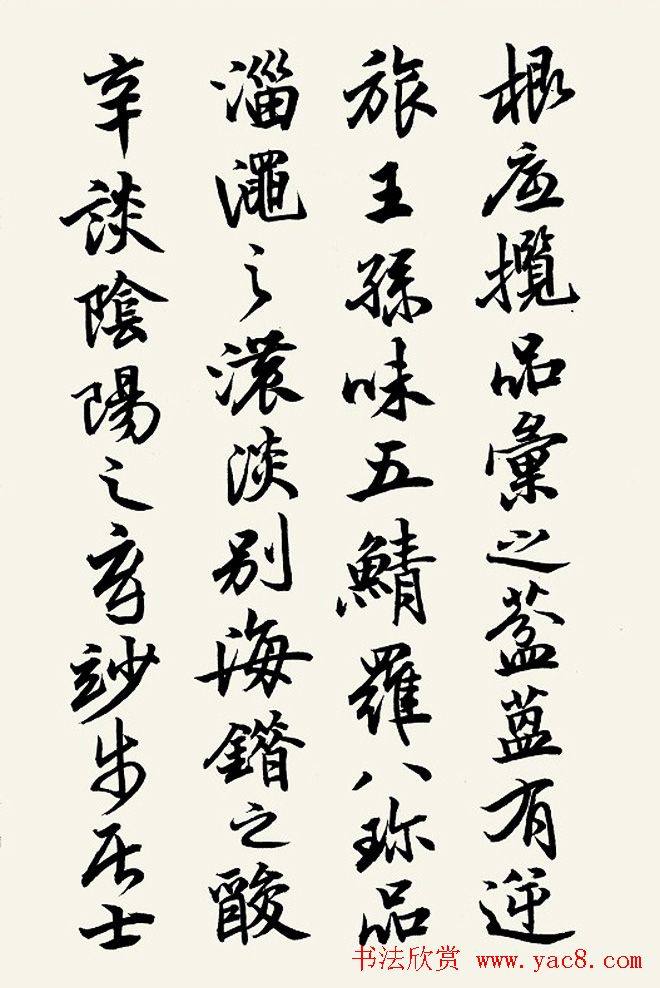 攬品彙之葢蒀有逆
旅王孫味五鯖羅八珍品
淄澠之濃淡別海鐕之酸
辛談陰陽之竗居士
书法欣赏 www.yac8.com